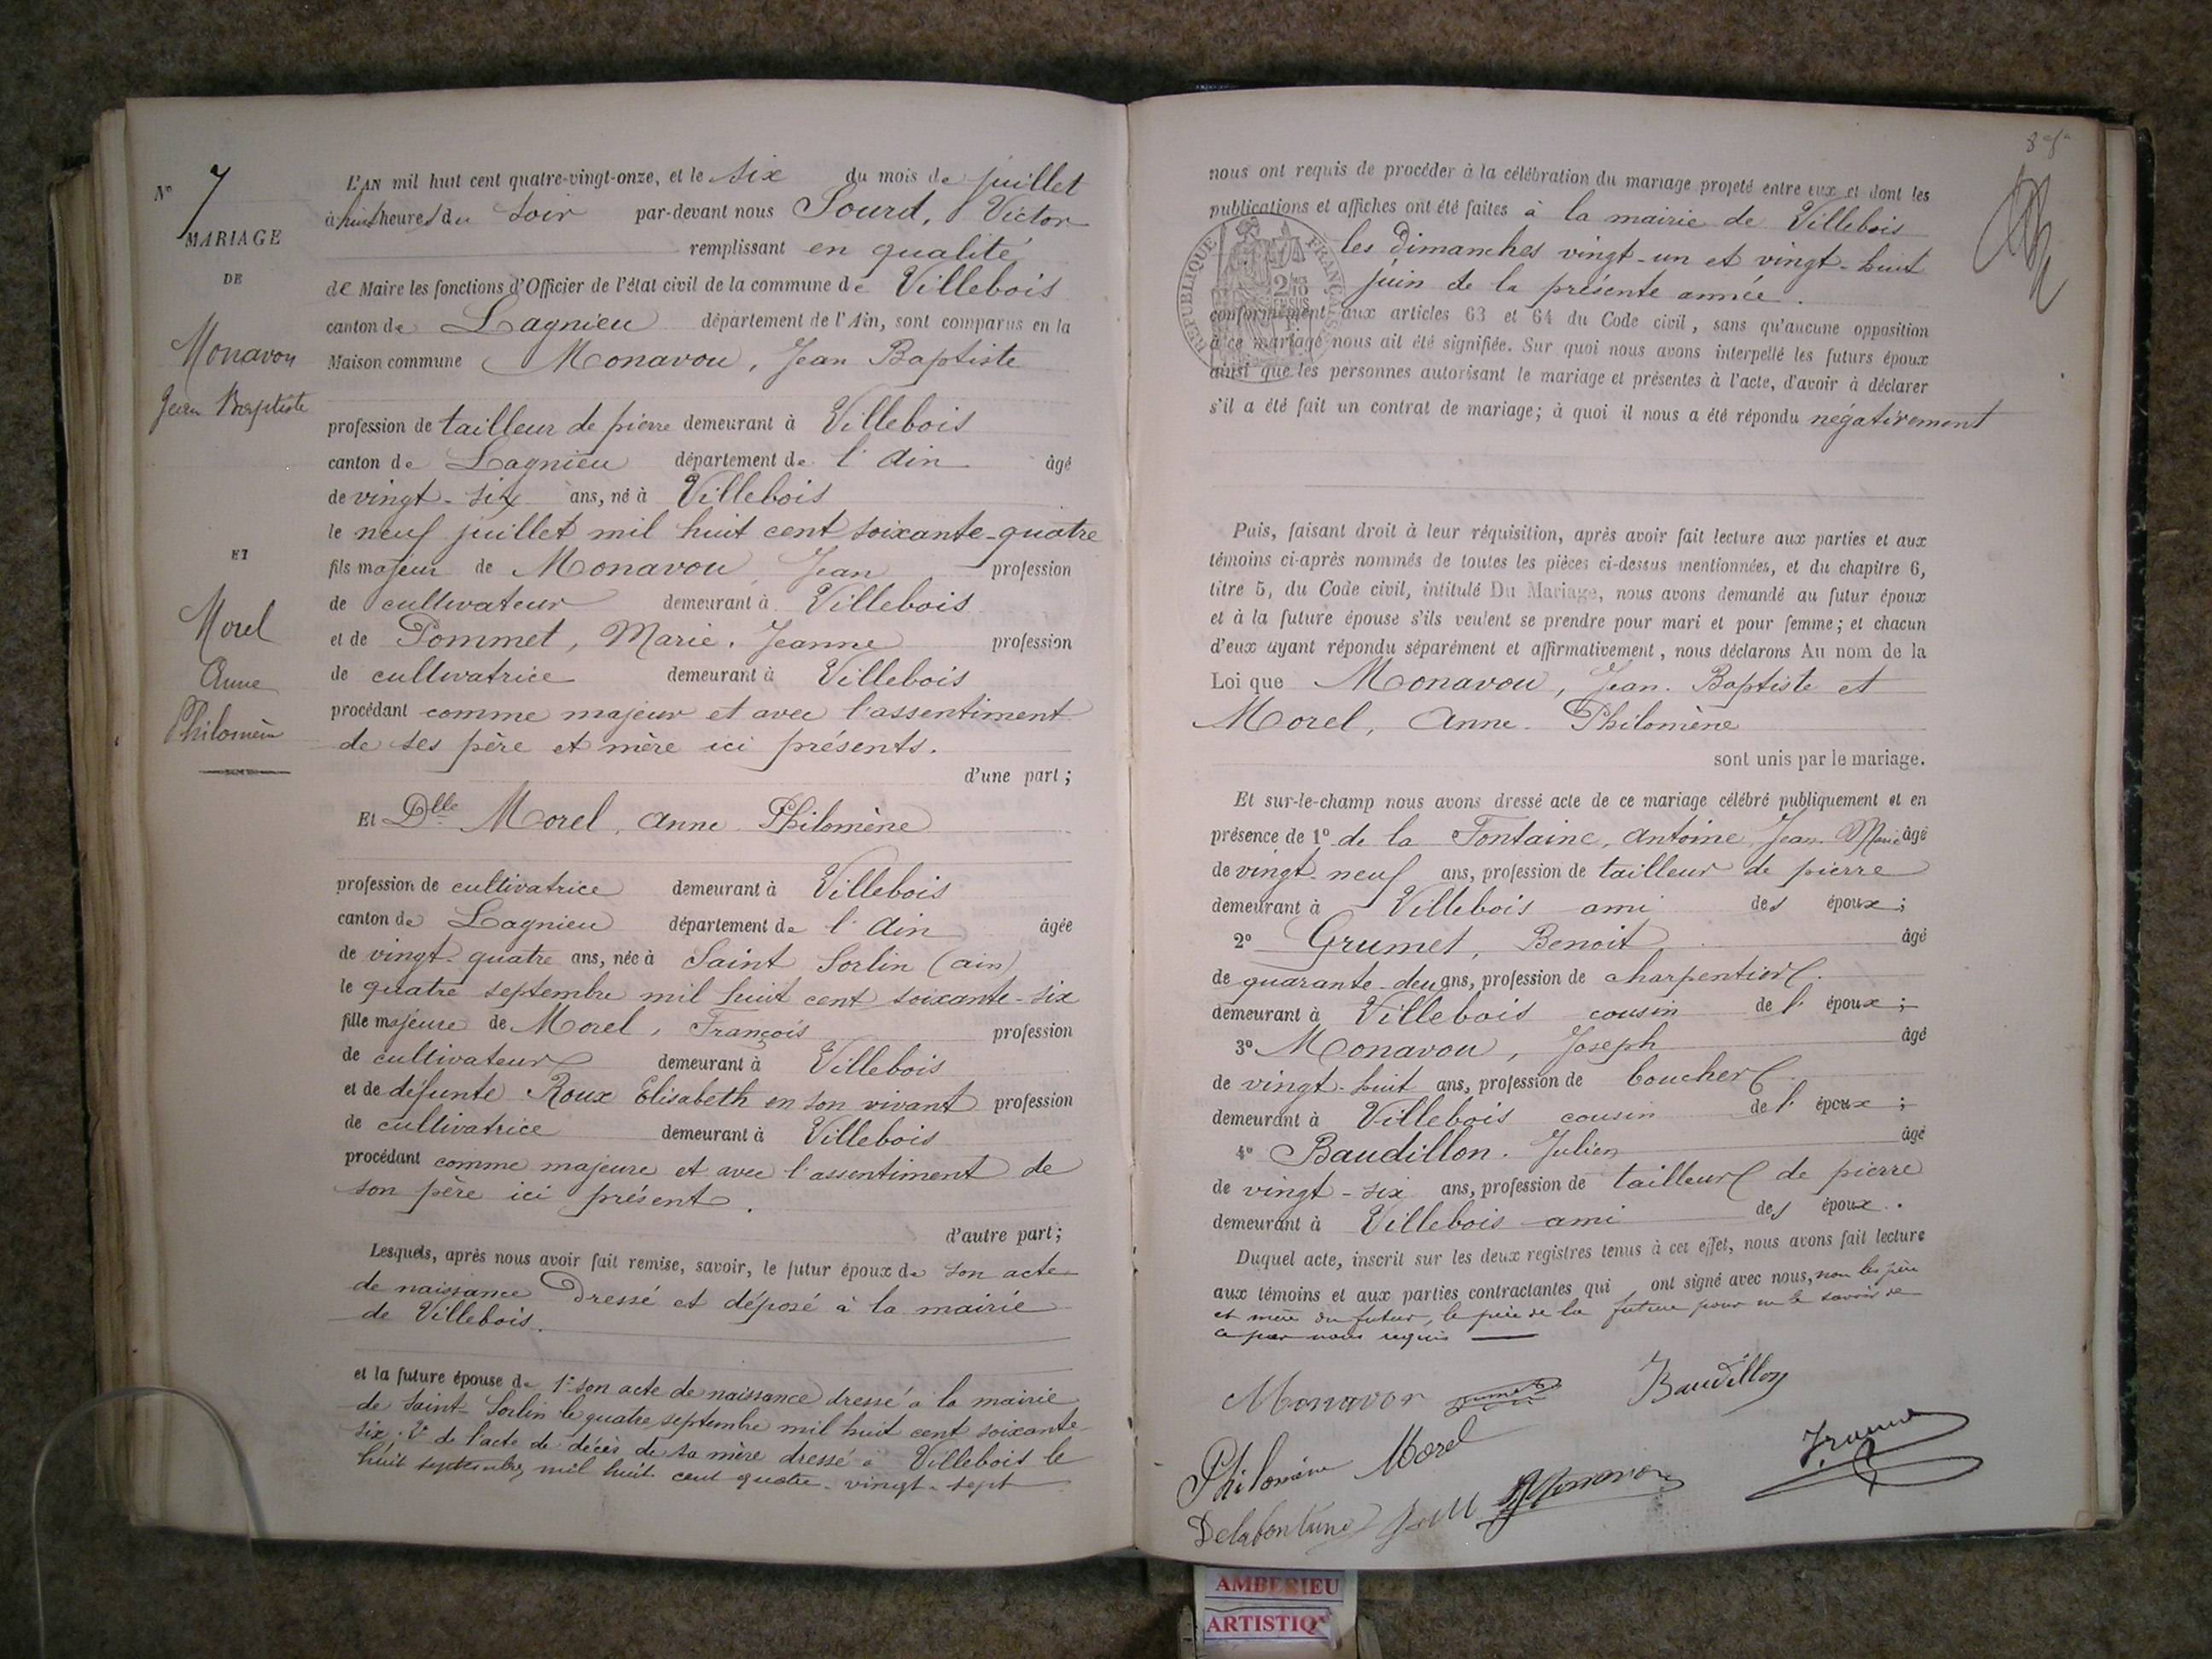 N° 7
MARIAGE
DE
Monavon
Jean Baptiste
ET
Morel
Anne
Philomène
L'AN mil huit cent quatre-vingt-onze, et le six du mois de juillet
à huit heures du soir par-devant nous Sourd, Victor
remplissant en qualité
de Maire les fonctions d'Officier de l'état civil de la commune de Villebois
canton de Lagnieu département de l'Ain, sont comparus en la
Maison commune Monavon, Jean Baptiste
profession de tailleur de pierre demeurant à Villebois
canton de Lagnieu département de l'Ain âgé
de vingt-six ans, né à Villebois
le neuf juillet mil huit cent soixante-quatre
fils majeur de Monavon, Jean profession
de cultivateur demeurant à Villebois
et de Pommet, Marie, Jeanne profession
de cultivatrice demeurant à Villebois
procédant comme majeur et avec l'assentiment
de ses père et mère ici présents.
d'une part;
Et Dlle Morel, Anne Philomène
profession de cultivatrice demeurant à Villebois
canton de Lagnieu département de l'Ain âgée
de vingt-quatre ans, née à Saint Sorlin (ain)
le quatre septembre mil huit cent soixante-six
fille majeure de Morel, François profession
de cultivateur demeurant à Villebois
et de défunte Roux Elisabeth en son vivant profession
de cultivatrice demeurant à Villebois
procédant comme majeure et avec l'assentiment de
son père ici présent.
d'autre part;
Lesquels, après nous avoir fait remise, savoir, le futur époux de son acte
de naissance dressé et déposé à la mairie
de Villebois.
et la future épouse de 1° son acte de naissance dressé à la mairie
de Saint-Sorlin le quatre septembre mil huit cent soixante-
six. 2° de l'acte de décès de sa mère dressé à Villebois le
huit septembre mil huit cent quatre-vingt-sept
nous ont requis de procéder à la célébration du mariage projeté entre eux et dont les
publications et affiches ont été faites à la mairie de Villebois
les dimanches vingt-un et vingt-huit
juin de la présente année.
REPUBLIQUE FRANÇAISE
conformément aux articles 63 et 64 du Code civil, sans qu'aucune opposition
à ce mariage nous ait été signifiée. Sur quoi nous avons interpellé les futurs époux
ainsi que les personnes autorisant le mariage et présentes à l'acte, d'avoir à déclarer
s'il a été fait un contrat de mariage; à quoi il nous a été répondu négativement
Puis, faisant droit à leur réquisition, après avoir fait lecture aux parties et aux
témoins ci-après nommés de toutes les pièces ci-dessus mentionnées, et du chapitre 6,
titre 5, du Code civil, intitulé Du Mariage, nous avons demandé au futur époux
et à la future épouse s'ils veulent se prendre pour mari et pour femme; et chacun
d'eux ayant répondu séparément et affirmativement, nous déclarons Au nom de la
Loi que Monavon, Jean-Baptiste et
Morel, Anne-Philomène
sont unis par le mariage.
Et sur-le-champ nous avons dressé acte de ce mariage célébré publiquement et en
présence de 1° de la Fontaine, Antoine, Jean Marie âgé
de vingt-neuf ans, profession de tailleur de pierre
demeurant à Villebois ami des époux;
2° Grumet, Benoit âgé
de quarante-deux ans, profession de charpentier
demeurant à Villebois cousin de l'époux;
3° Monavon, Joseph âgé
de vingt-huit ans, profession de boucher
demeurant à Villebois cousin de l'époux;
4° Baudillon, Julien âgé
de vingt-six ans, profession de tailleur de pierre
demeurant à Villebois ami des époux.
Duquel acte, inscrit sur les deux registres tenus à cet effet, nous avons fait lecture
aux témoins et aux parties contractantes qui ont signé avec nous, non les père
et mère du futur, le père de la future pour ne le savoir de
ce par nous requis
Monavon Grumet Baudillon
Philomène Morel
Delafontaine J M Monavon
AMBERIEU
ARTISTIQ